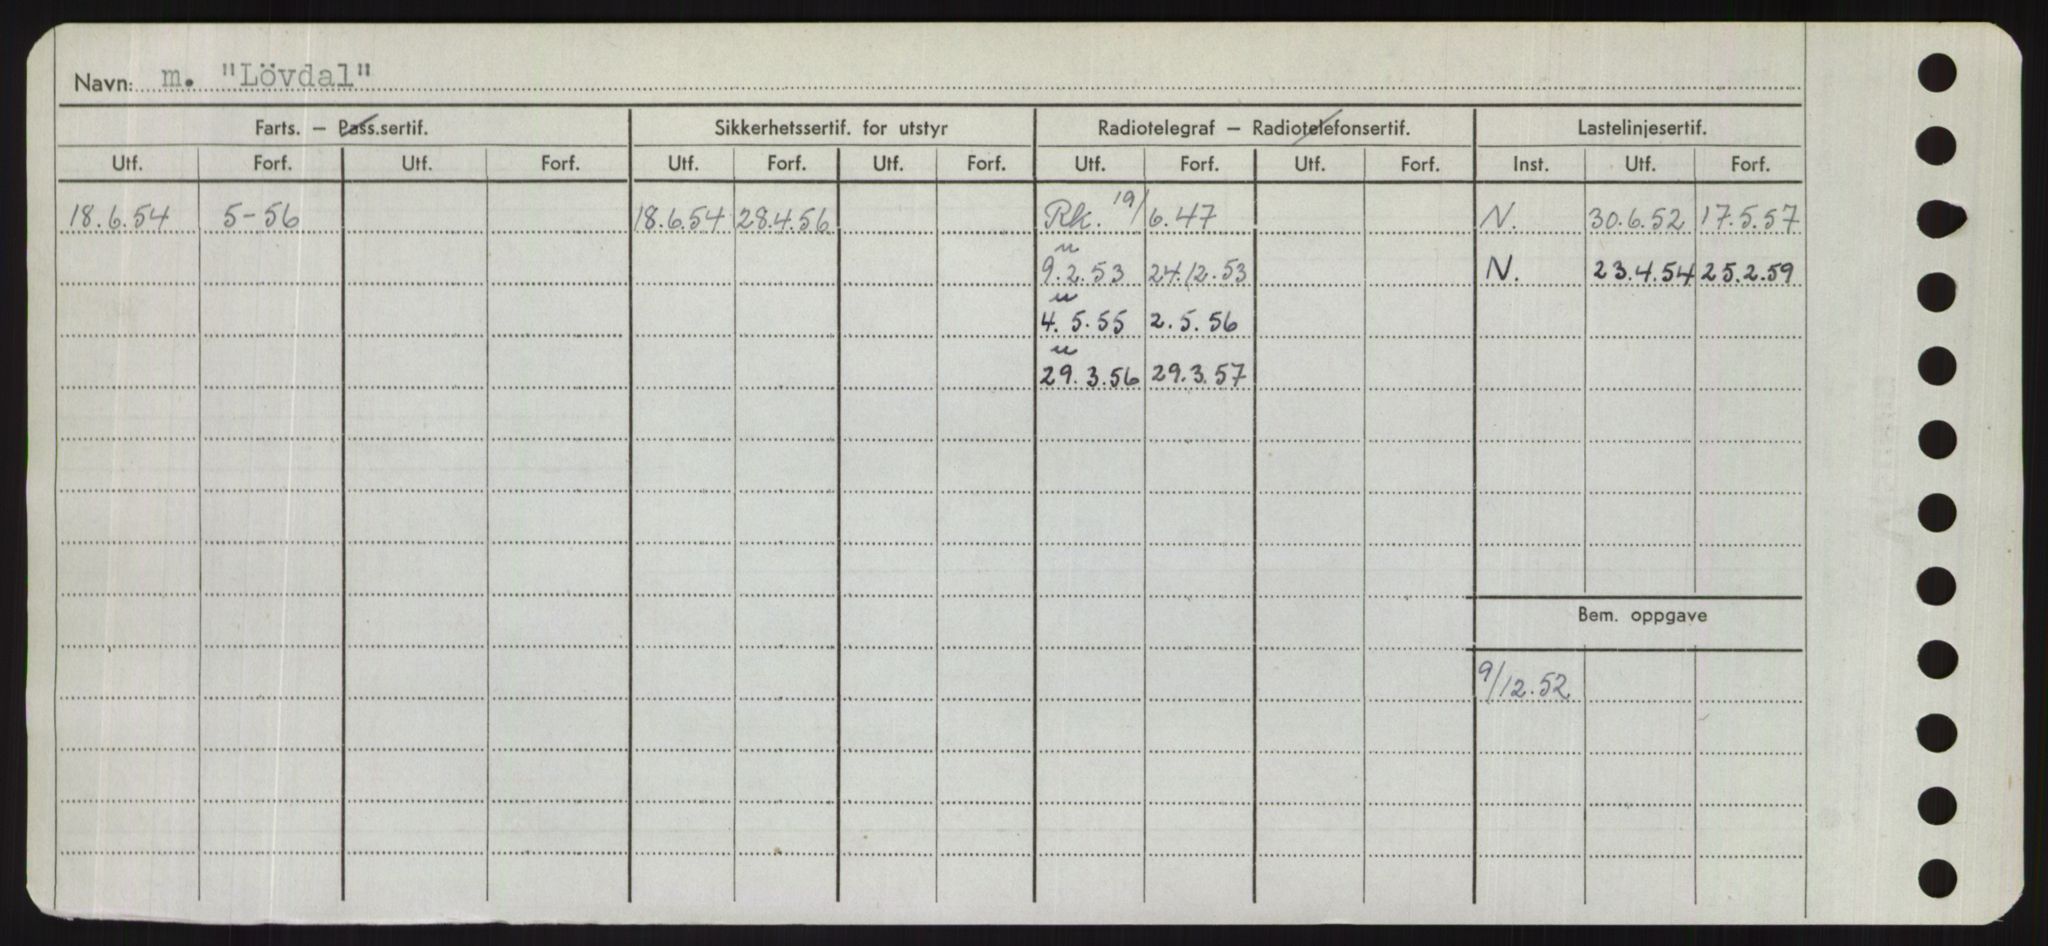 Navn: m. "Lövdal"
Farts. – Pass.sertif. Sikkerhetssertif. for utstyr Radiotelegraf – Radiotelefonsertif. Lastelinjesertif.
Utf. Forf. Utf. Forf. Utf. Forf. Utf. Forf. Utf. Forf. Utf. Forf. Inst. Utf. Forf.
18.6.54 5-56 18.6.54 28.4.56 Rk. 19/6.47 N. 30.6.52 17.5.57
u
9.2.53 24.12.53 N. 23.4.54 25.2.59
u
4.5.55 2.5.56
u
29.3.56 29.3.57
Bem. oppgave
9/12.52